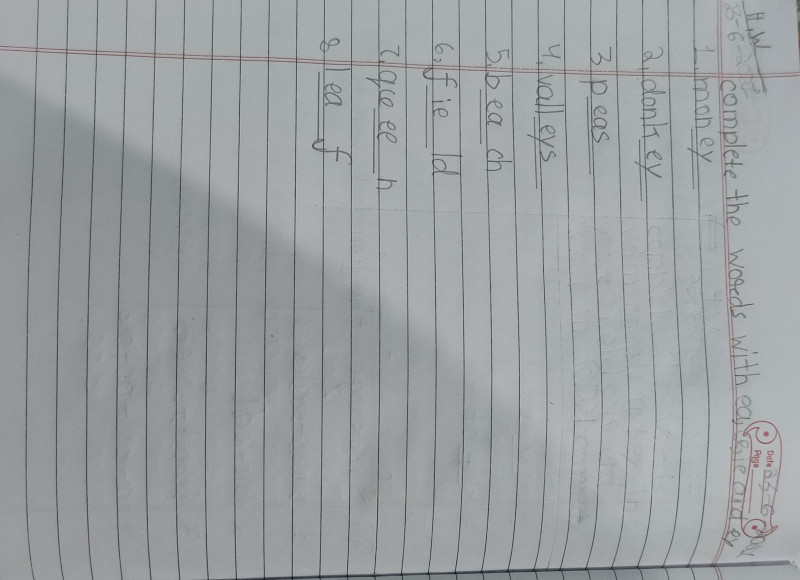 H.W
complete the words with ea, ee, ie and ey
Date
Page
1. money
2. donkey
3. peas
4. valleys
5. beach
6. field
7. green
8. leaf